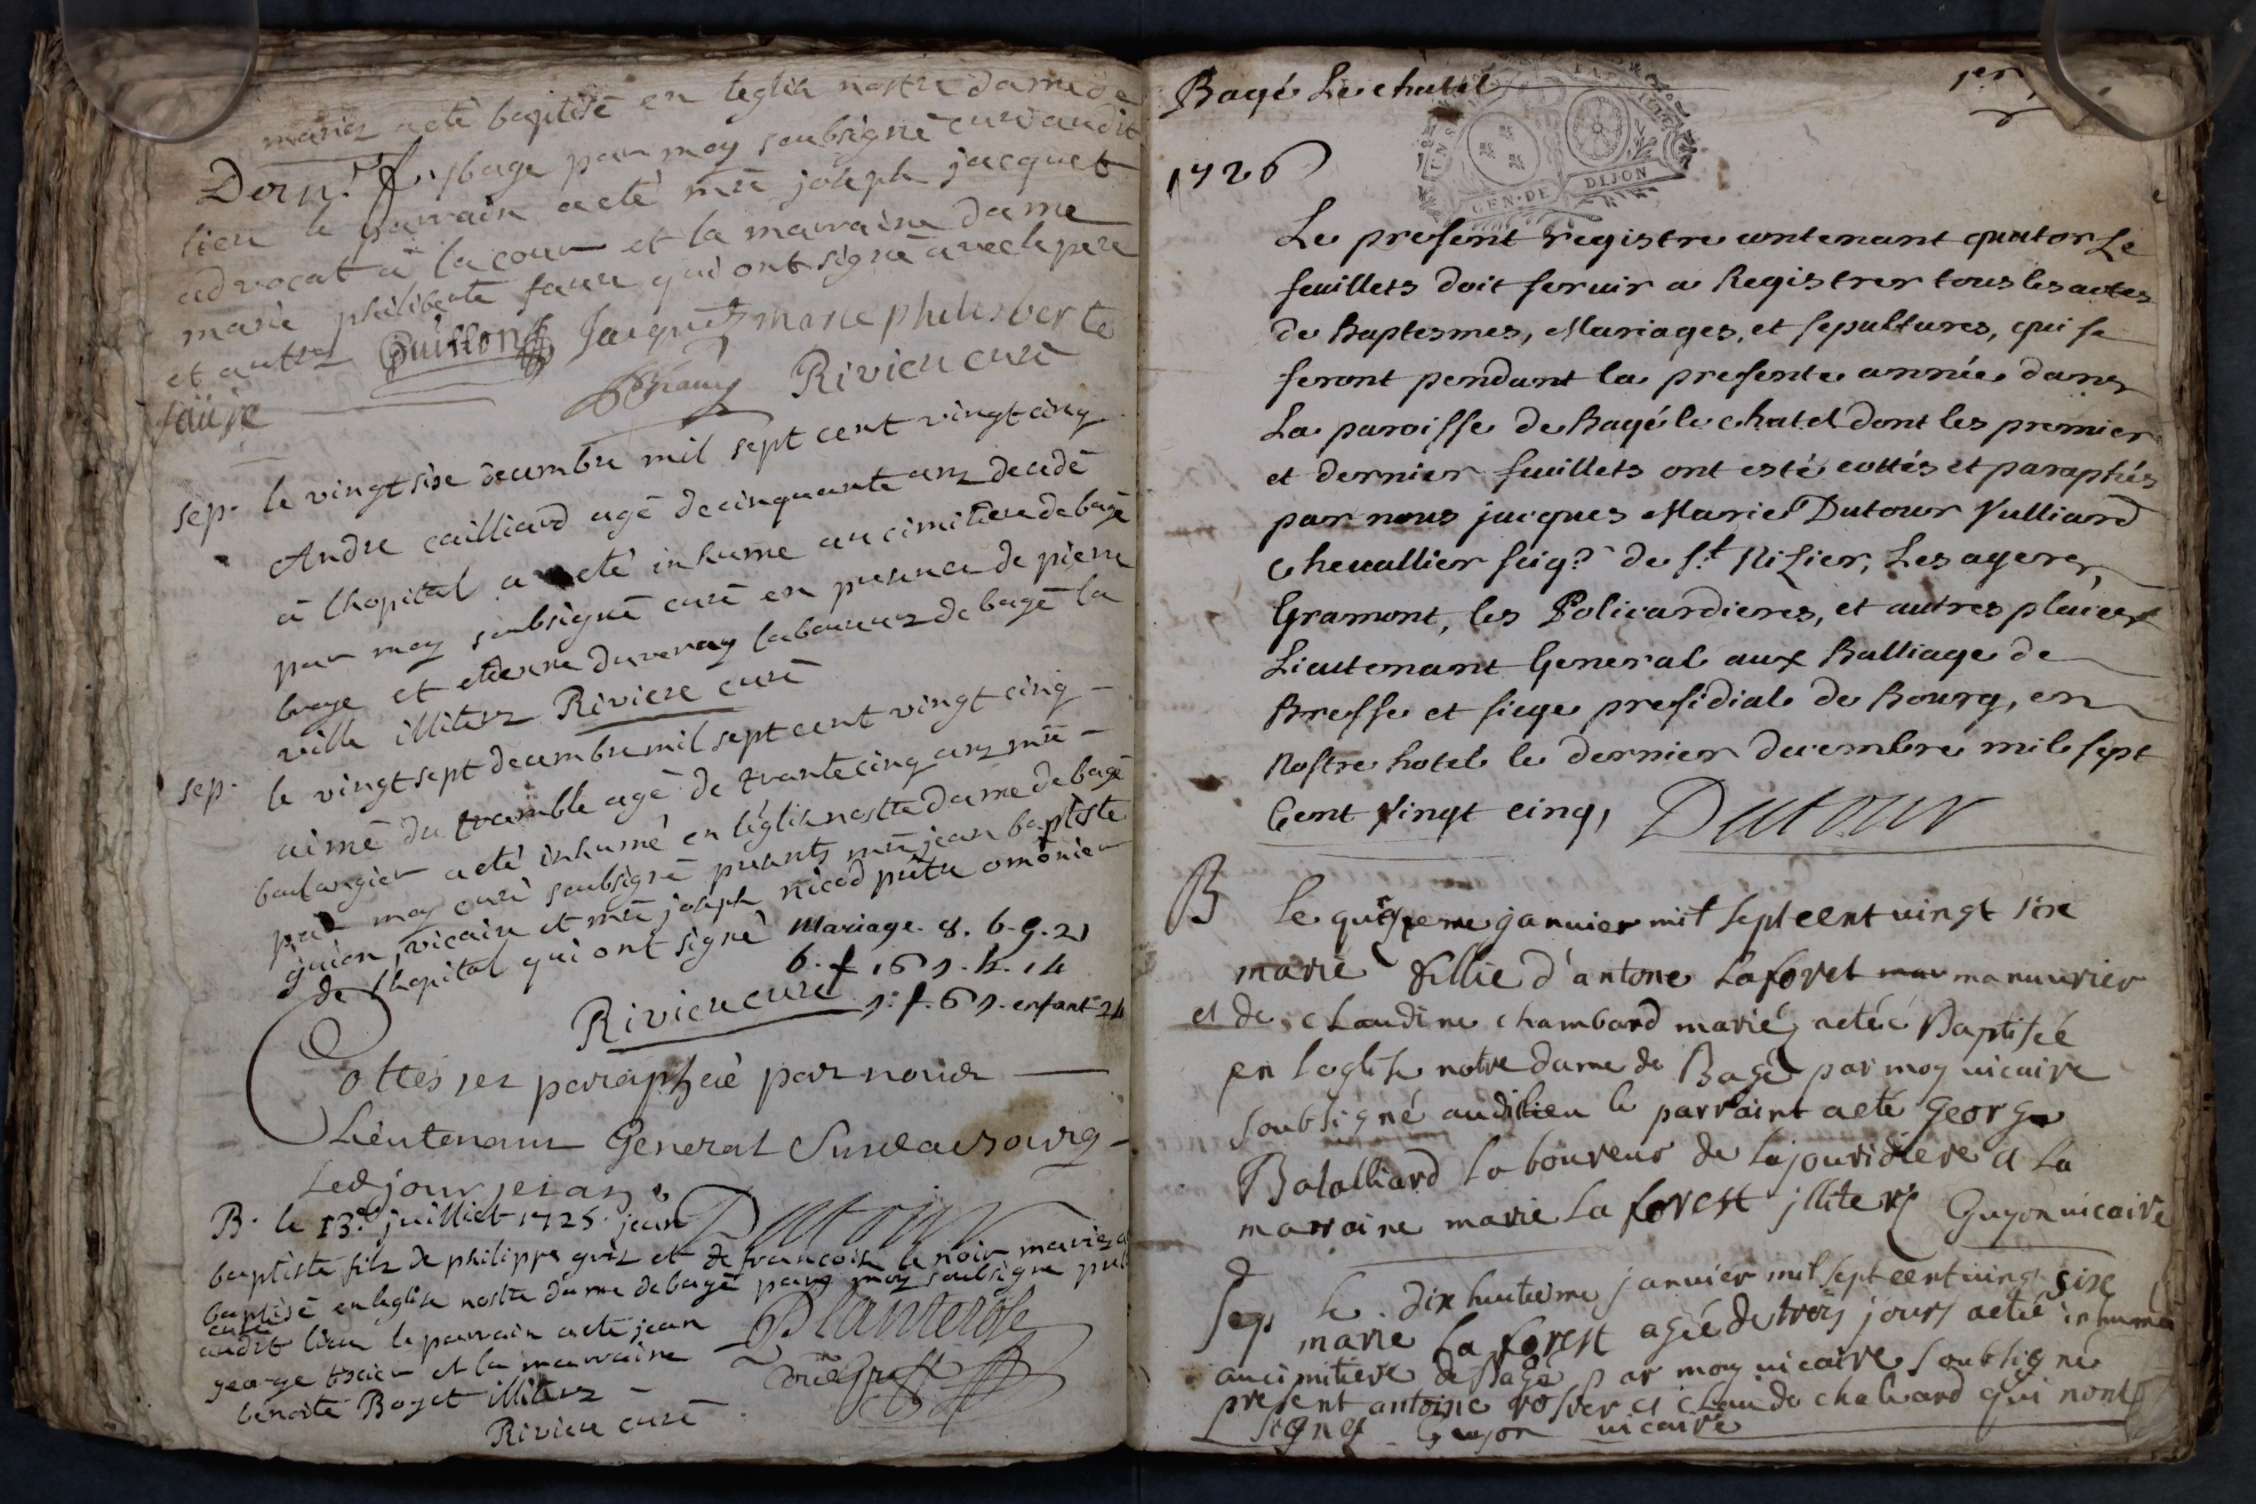 mariez acté baptisé en leglise nostre dame de
Dern.r f. bagé par moy soubsigné curé audit
lieu le parrain acté mre joseph jacquet
advocat a la cour et la marraine dame
marie philiberte faure qui ont signé avec le pere
et autres Guillon Jacquet marie philesberte
faüre Riviere curé
sep. le vingt six decembre mil sept cent vingt cinq
Andre cailliard agé de cinquante ans decedé
a lhopital a eté inhume au cimitiere de bagé
par moy soubsigné curé en presence de pierre
broye et etienne duveray laboureurs de bagé la
ville illiterez Riviere curé
sep. le vingt sept decembre mil sept cent vingt cinq
aimé du tremble agé de trante cinq ans mre
boulangier acté inhumé en léglise nostre dame de bagé
par moy curé soubsigné presents mre jean baptiste
guion vicaire et mre joseph nicod pretre omônier
de lhopital qui ont signé Mariage. 8. b. g. 21
b. f. 16 1. h. 14
Riviere curé 1. f. 6 1. enfant 24
Cottés et paraphée par nous
Lieutenant General Susd a Bourg
Led jour et an
Dutour
B. le 13e juilliet 1725 jean
baptiste fils de philippe gris et de francoise le noir mariez a
baptisé en leglise nostre dame de bagé par moy soubsigné
curé
audit lieu le parrain acté jean
george et la marraine
benoite Boyet illiterez
Riviere curé
Planterose
Bagé Le chatel
1er
GEN. DE DIJON
1726
Le present registre contenant quatorze
feuillets doit servir a Registrer tous les actes
de Baptesmes, Mariages, et sepultures, qui se
feront pendant la presente année dans
La paroisse de Bagé le chatel dont les premier
et dernier feuillets ont esté cottés et paraphés
par nous jacques Marie Dutour Vulliard
chevallier seigr de st Nizier, Les ageres,
Gramont, les Policardieres, et autres places
Lieutenant General aux Balliage de
Bresse et siege presidial de Bourg, en
Nostre hotel le dernier decembre mil sept
Cent Vingt cinq, Dutour
B Le quinzieme janvier mil sept cent vingt six
marie fillie d'antone Laforet manuvrier
et de Claudine chambard mariéz acté Baptiseé
en leglise notre dame de Bagé par moy vicaire
soubsigné audit lieu le parraint acté George
Batalliard laboureur de la jouridiere a La
marraine marie La forest jlliterez Guyon vicaire
Sep le dix huitieme janvier mil sept cent ving six
marie La forest ageé de trois jours acté inhumé
au cimitiere de Bagé par moy vicaire soubsigné
present antoine rosier et claude chaluard qui n'ont
signez Guyon vicaire